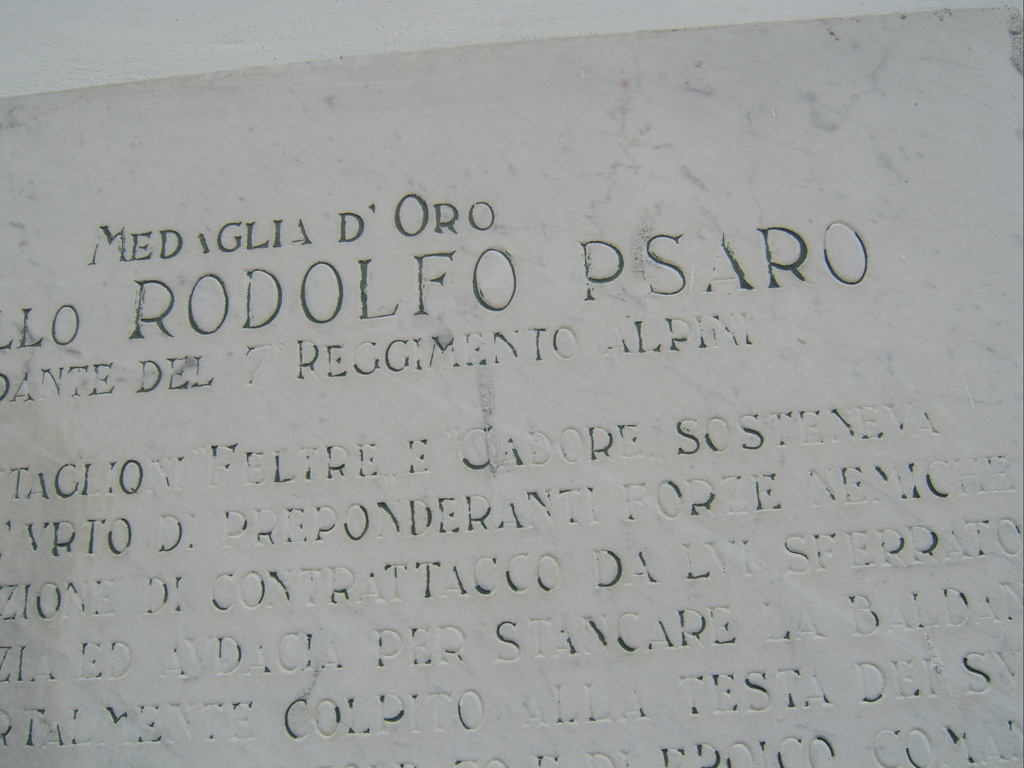 MEDAGLIA D' ORO
LLO RODOLFO PSARO
DANTE DEL 7° REGGIMENTO ALPINI
TAGLIONI "FELTRE" E "CADORE" SOSTENEVA
L'VRTO DI PREPONDERANTI FORZE NEMICHE
ZIONE DI CONTRATTACCO DA LVI SFERRATO
ZIA ED AVDACIA PER STANCARE LA BALDAN
RTALMENTE COLPITO ALLA TESTA DEI SV
E DI EROICO COMAN